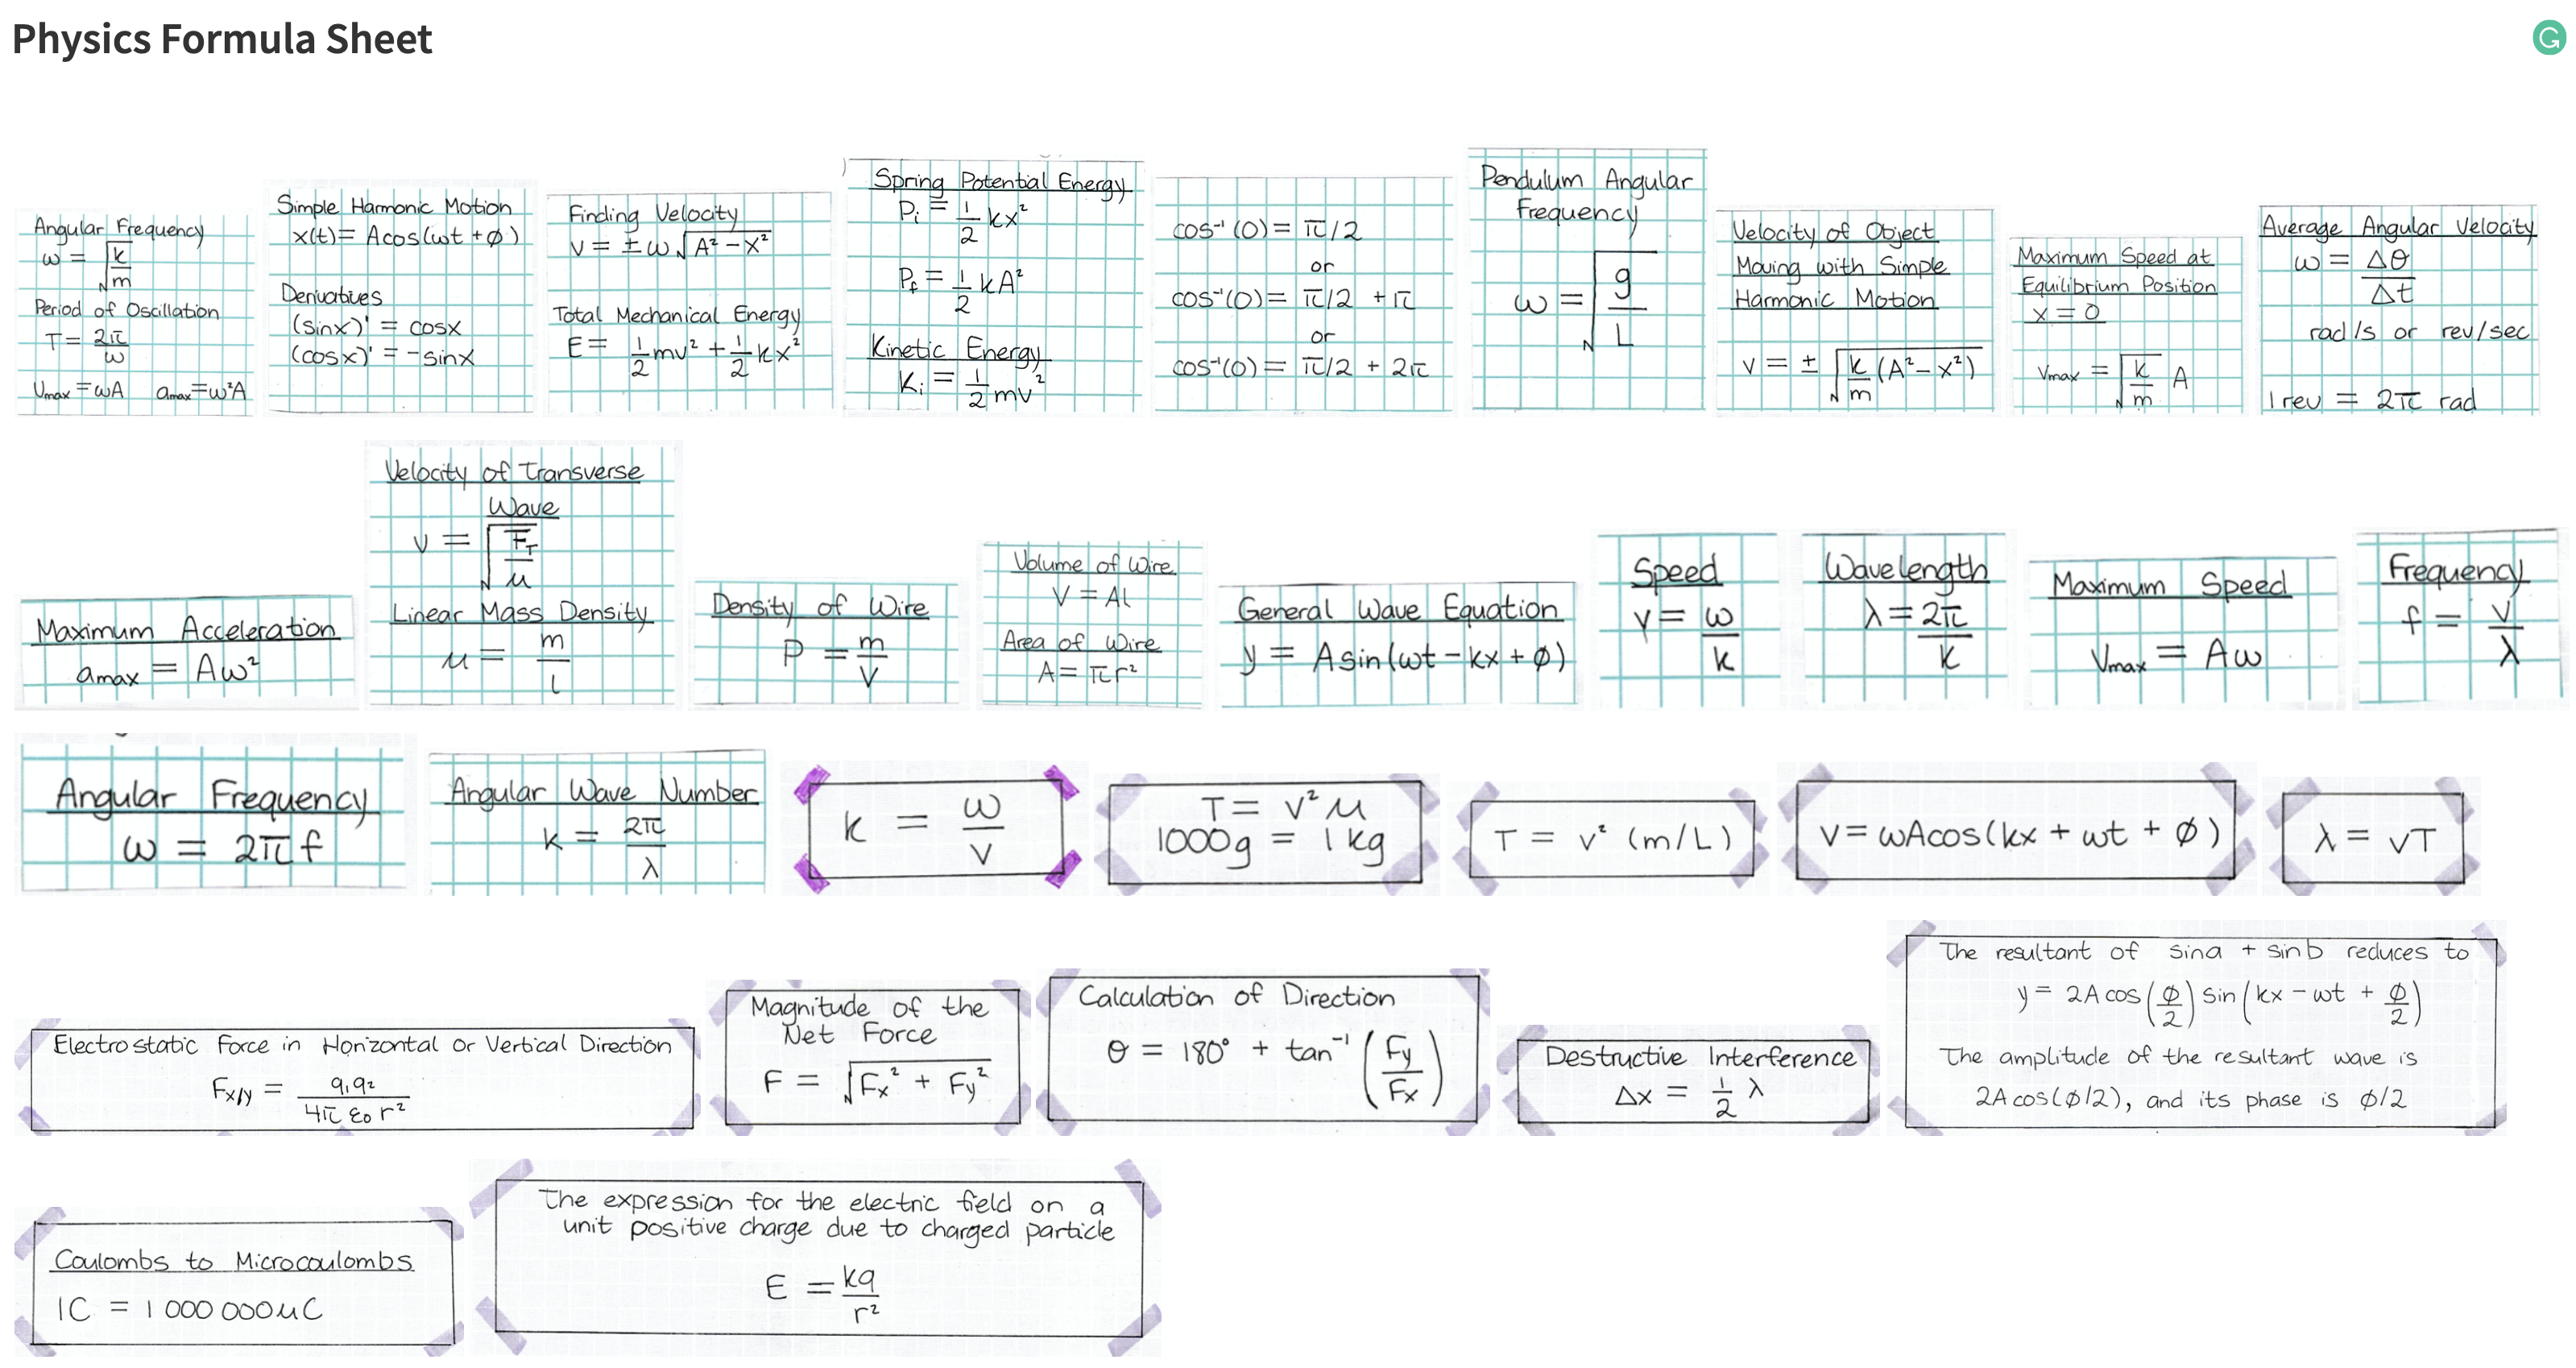 Physics Formula Sheet
Angular Frequency
ω = √(k/m)
Period of Oscillation
T = 2π/ω
Vmax = ωA amax = ω²A
Simple Harmonic Motion
x(t) = Acos(ωt + ϕ)
Derivatives
(sinx)' = cosx
(cosx)' = -sinx
Finding Velocity
V = ± ω√(A² - x²)
Total Mechanical Energy
E = 1/2 mv² + 1/2 kx²
Spring Potential Energy
Pi = 1/2 kx²
Pf = 1/2 kA²
Kinetic Energy
Ki = 1/2 mv²
cos⁻¹(0) = π/2
or
cos⁻¹(0) = π/2 + π
or
cos⁻¹(0) = π/2 + 2π
Pendulum Angular
Frequency
ω = √(g/L)
Velocity of Object
Moving with Simple
Harmonic Motion
v = ± √(k/m (A² - x²))
Maximum Speed at
Equilibrium Position
x = 0
Vmax = √(k/m) A
Average Angular Velocity
ω = Δθ/Δt
rad/s or rev/sec
1 rev = 2π rad
Maximum Acceleration
amax = Aω²
Velocity of Transverse
Wave
v = √(FT/μ)
Linear Mass Density
μ = m/l
Density of Wire
P = m/V
Volume of Wire
V = Al
Area of Wire
A = πr²
General Wave Equation
y = Asin(ωt - kx + ϕ)
Speed
v = ω/k
Wavelength
λ = 2π/k
Maximum Speed
Vmax = Aω
Frequency
f = v/λ
Angular Frequency
ω = 2πf
Angular Wave Number
k = 2π/λ
k = ω/v
T = v²μ
1000g = 1kg
T = v² (m/L)
V = ωAcos(kx + ωt + ϕ)
λ = vT
Electrostatic Force in Horizontal or Vertical Direction
Fx/y = q₁q₂/4πε₀r²
Magnitude of the
Net Force
F = √(Fx² + Fy²)
Calculation of Direction
θ = 180° + tan⁻¹(Fy/Fx)
Destructive Interference
Δx = 1/2 λ
The resultant of sina + sinb reduces to
y = 2A cos(ϕ/2) sin(kx - ωt + ϕ/2)
The amplitude of the resultant wave is
2A cos(ϕ/2), and its phase is ϕ/2
Coulombs to Microcoulombs
1C = 1 000 000μC
The expression for the electric field on a
unit positive charge due to charged particle
E = kq/r²